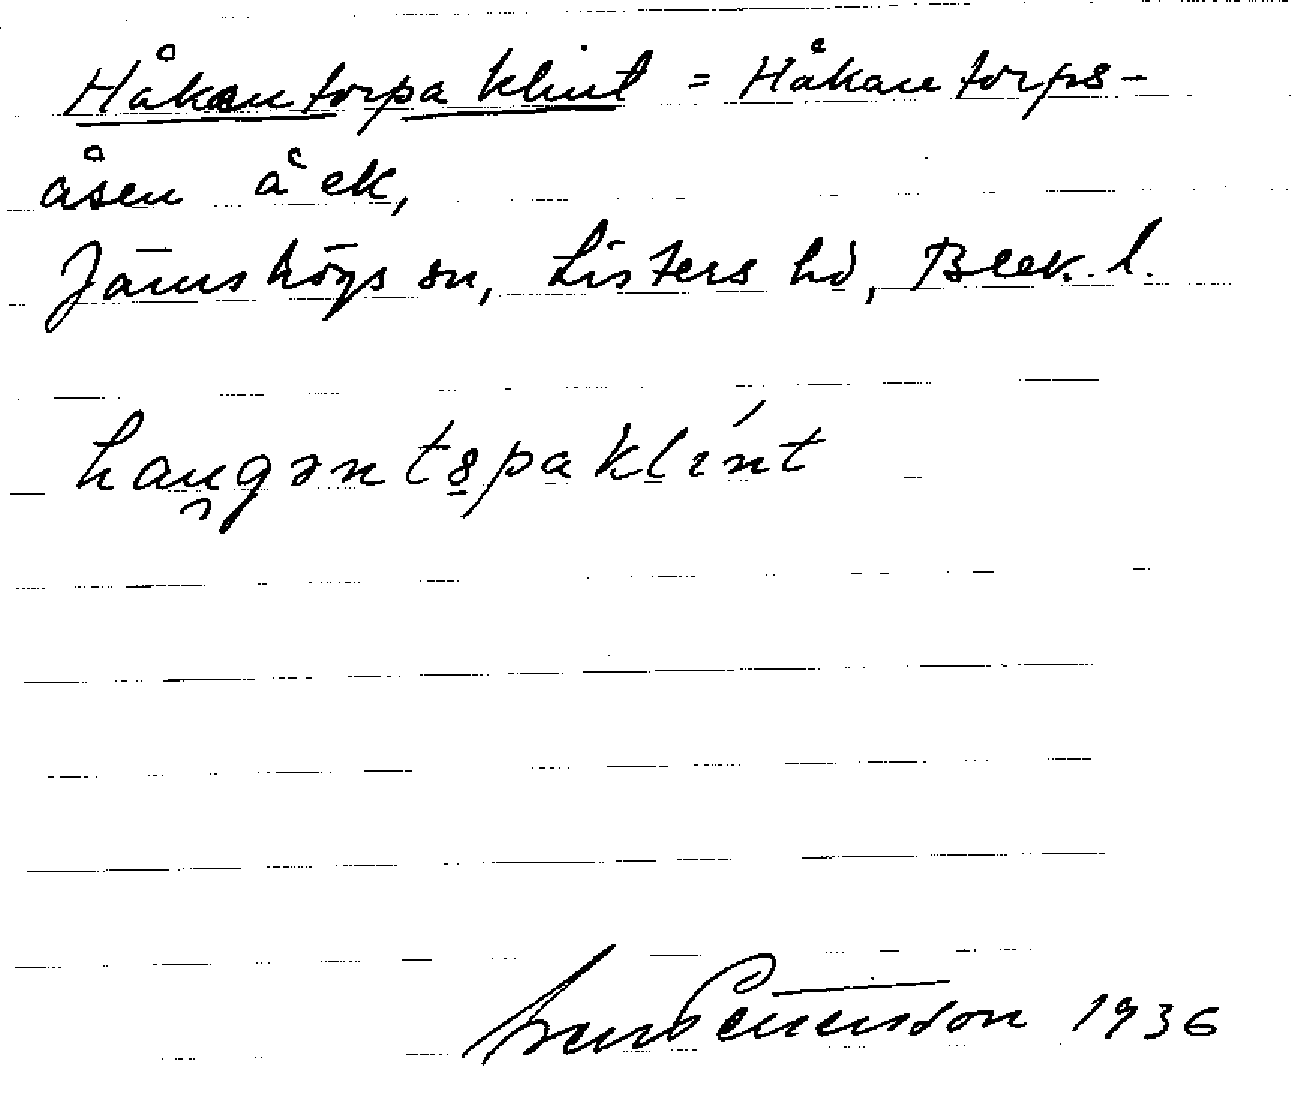 Håkantorpa klint = Håkantorps-
åsen å ek,
Jämshögs sn, Listers hd, Blek. l.
hau̯gəntȣpaklínt
Sven Benson 1936